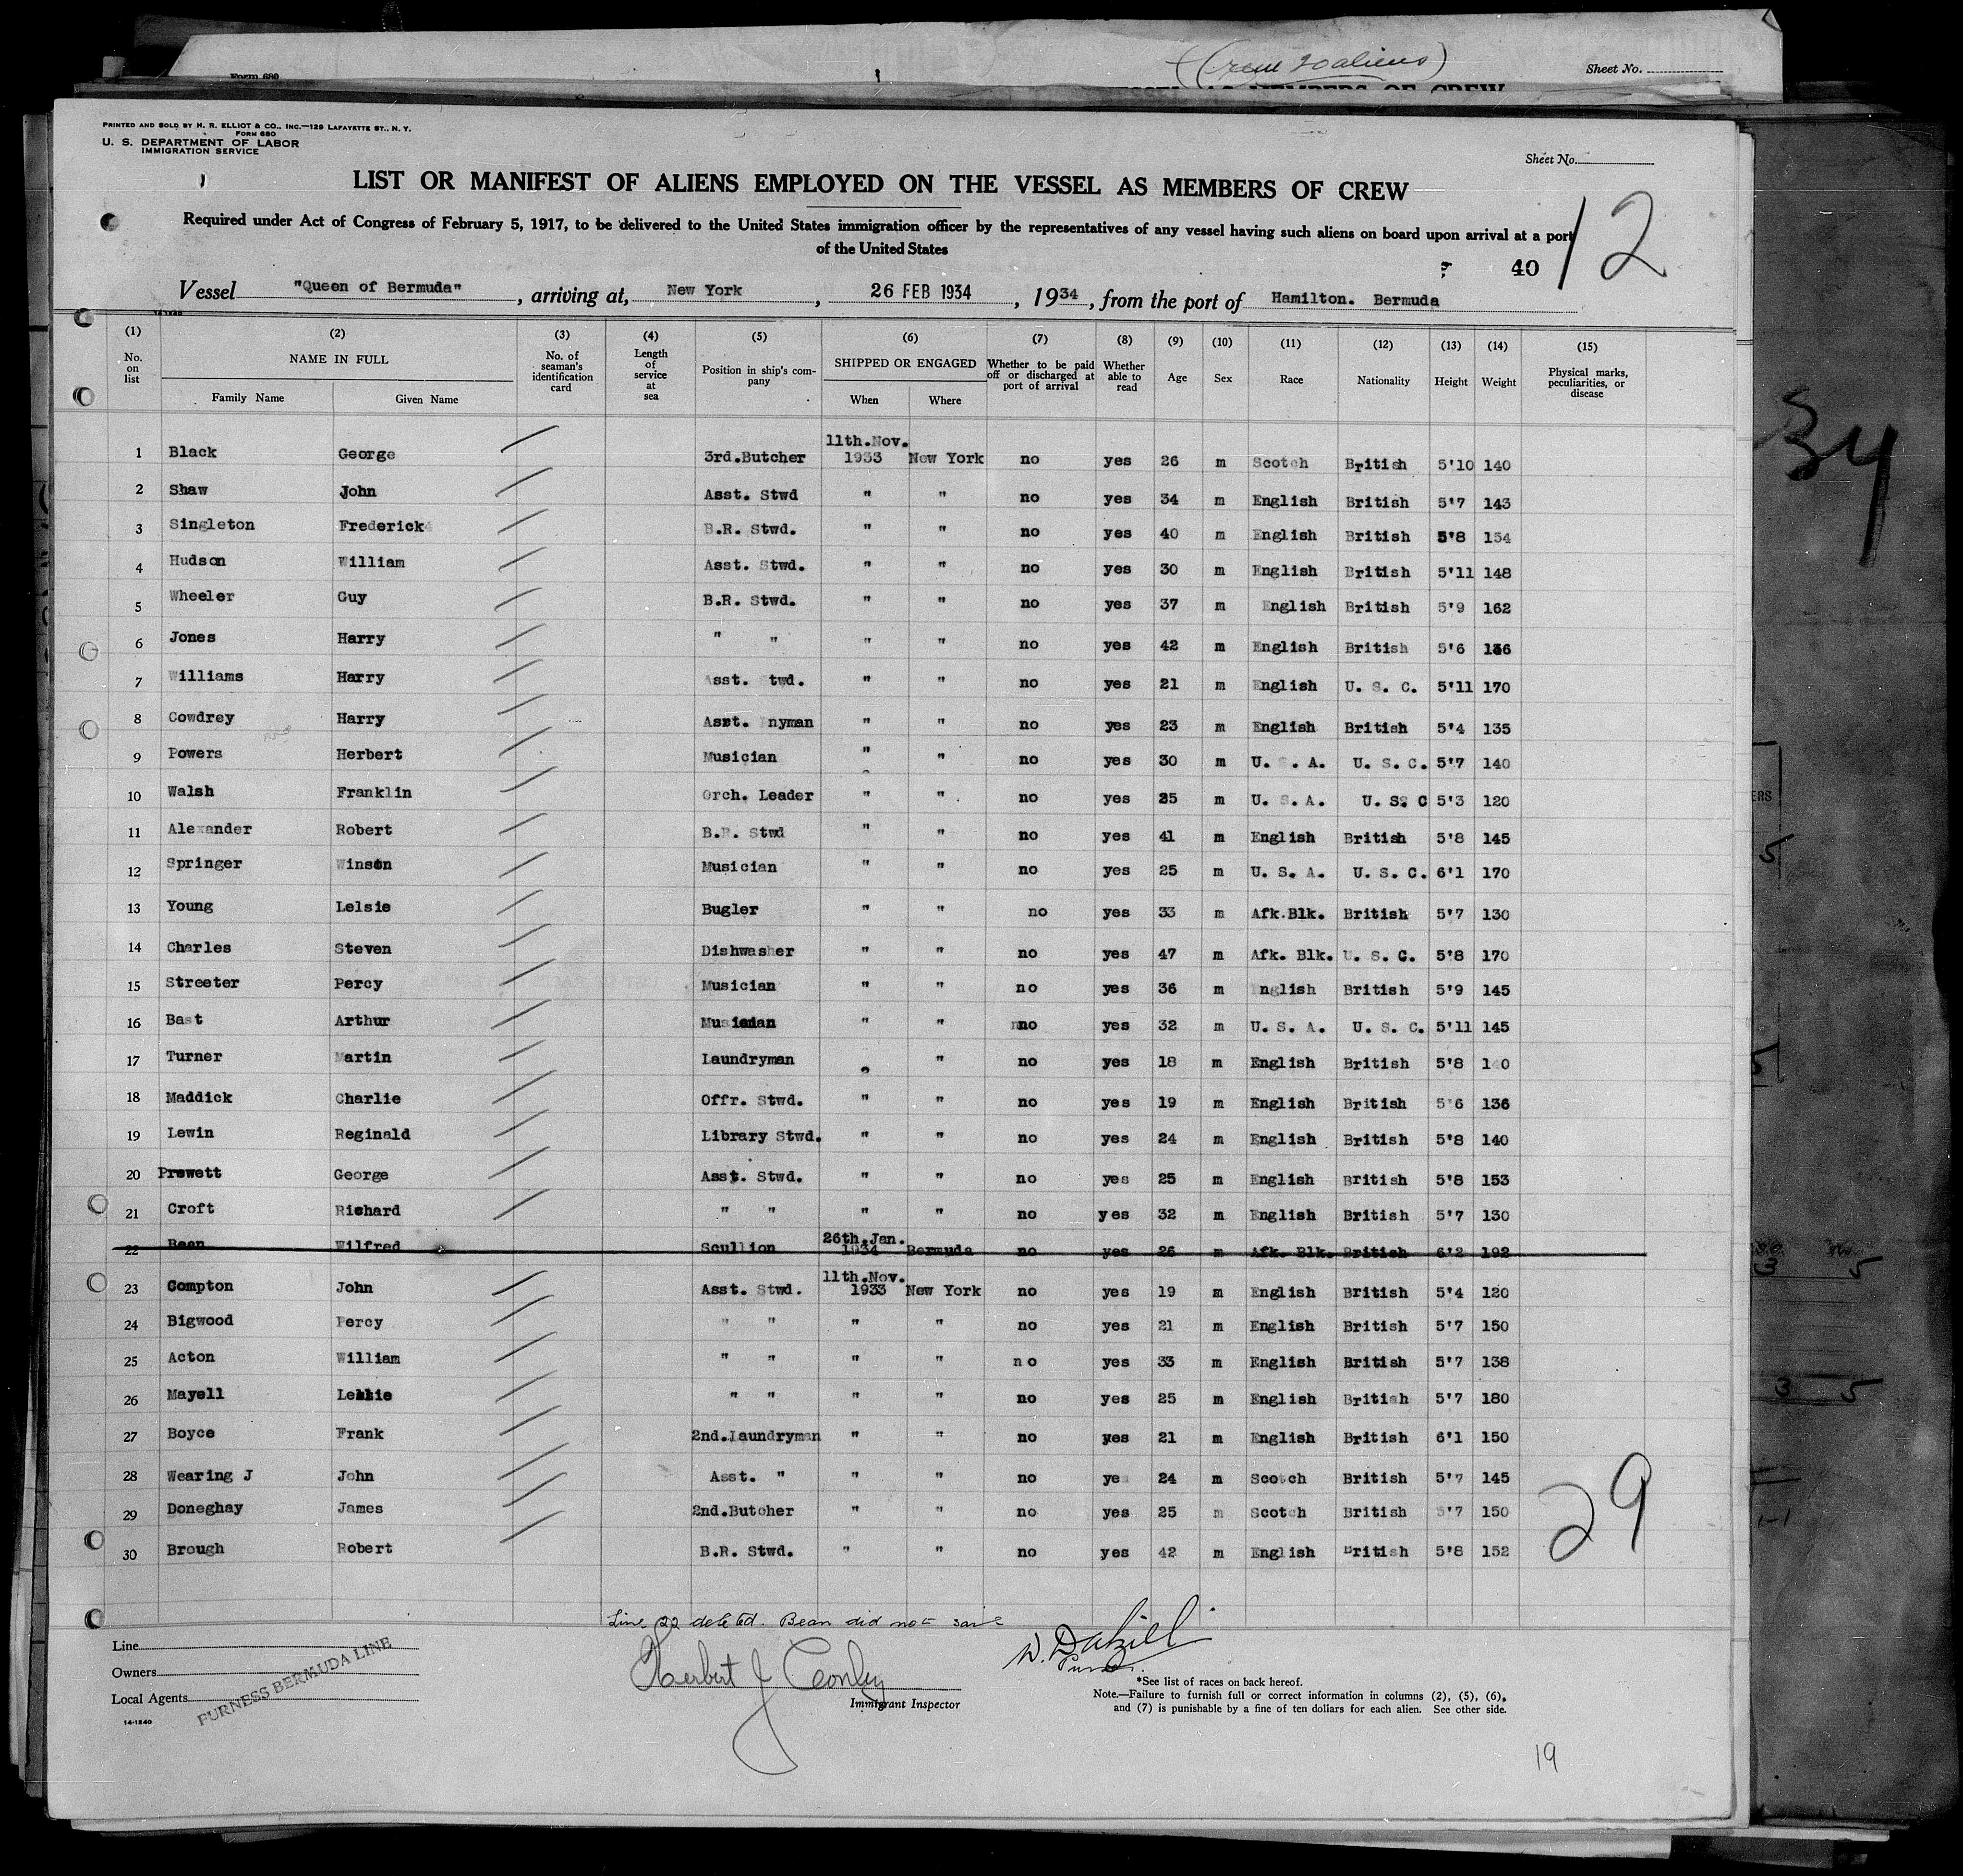 Form 680
(Crew 20 aliens)
Sheet No.
PRINTED AND SOLD BY H. R. ELLIOT & CO., INC.—129 LAFAYETTE ST., N. Y.
FORM 680
U. S. DEPARTMENT OF LABOR
IMMIGRATION SERVICE
Sheet No.
LIST OR MANIFEST OF ALIENS EMPLOYED ON THE VESSEL AS MEMBERS OF CREW
12
Required under Act of Congress of February 5, 1917, to be delivered to the United States immigration officer by the representatives of any vessel having such aliens on board upon arrival at a port
of the United States
40
Vessel "Queen of Bermuda", arriving at, New York, 26 FEB 1934, 1934, from the port of Hamilton. Bermuda
14-1240
(1) (2) (3) (4) (5) (6) (7) (8) (9) (10) (11) (12) (13) (14) (15)
No. on list NAME IN FULL Family Name Given Name No. of seaman's identification card Length of service at sea Position in ship's company SHIPPED OR ENGAGED When Where Whether to be paid off or discharged at port of arrival Whether able to read Age Sex Race Nationality Height Weight Physical marks, peculiarities, or disease
34
1 Black George 3rd.Butcher 11th.Nov. 1933 New York no yes 26 m Scotch British 5'10 140
2 Shaw John Asst. Stwd " " no yes 34 m English British 5'7 143
3 Singleton Frederick B.R. Stwd. " " no yes 40 m English British 5'8 154
4 Hudson William Asst. Stwd. " " no yes 30 m English British 5'11 148
5 Wheeler Guy B.R. Stwd. " " no yes 37 m English British 5'9 162
6 Jones Harry " " " " no yes 42 m English British 5'6 136
7 Williams Harry Asst. Stwd. " " no yes 21 m English U. S. C. 5'11 170
8 Cowdrey Harry Asst. nyman " " no yes 23 m English British 5'4 135
9 Powers Herbert Musician " " no yes 30 m U. S. A. U. S. C. 5'7 140
10 Walsh Franklin Orch. Leader " " no yes 25 m U. S. A. U. S. C 5'3 120
11 Alexander Robert B.R. Stwd " " no yes 41 m English British 5'8 145
12 Springer Winson Musician " " no yes 25 m U. S. A. U. S. C. 6'1 170
13 Young Lelsie Bugler " " no yes 33 m Afk.Blk. British 5'7 130
14 Charles Steven Dishwasher " " no yes 47 m Afk. Blk. U. S. C. 5'8 170
15 Streeter Percy Musician " " no yes 36 m English British 5'9 145
16 Bast Arthur Musician " " no yes 32 m U. S. A. U. S. C. 5'11 145
17 Turner Martin Laundryman " " no yes 18 m English British 5'8 140
18 Maddick Charlie Offr. Stwd. " " no yes 19 m English British 5'6 136
19 Lewin Reginald Library Stwd. " " no yes 24 m English British 5'8 140
20 Prewett George Asst. Stwd. " " no yes 25 m English British 5'8 153
21 Croft Richard " " " " no yes 32 m English British 5'7 130
22 Bean Wilfred Scullion 26th.Jan. 1934 Bermuda no yes 26 m Afk. Blk. British 6'2 192
23 Compton John Asst. Stwd. 11th.Nov. 1933 New York no yes 19 m English British 5'4 120
24 Bigwood Percy " " " " no yes 21 m English British 5'7 150
25 Acton William " " " " no yes 33 m English British 5'7 138
26 Mayell Leslie " " " " no yes 25 m English British 5'7 180
27 Boyce Frank 2nd.Laundryman " " no yes 21 m English British 6'1 150
28 Wearing J John Asst. " " " no yes 24 m Scotch British 5'7 145
29 Doneghay James 2nd.Butcher " " no yes 25 m Scotch British 5'7 150
30 Brough Robert B.R. Stwd. " " no yes 42 m English British 5'8 152
29
Line 22 deleted. Bean did not sail
Line
Owners
Local Agents
FURNESS BERMUDA LINE
14-1240
Herbert J Conley
Immigrant Inspector
W. Dalziel
Purser.
*See list of races on back hereof.
Note.—Failure to furnish full or correct information in columns (2), (5), (6),
and (7) is punishable by a fine of ten dollars for each alien. See other side.
19